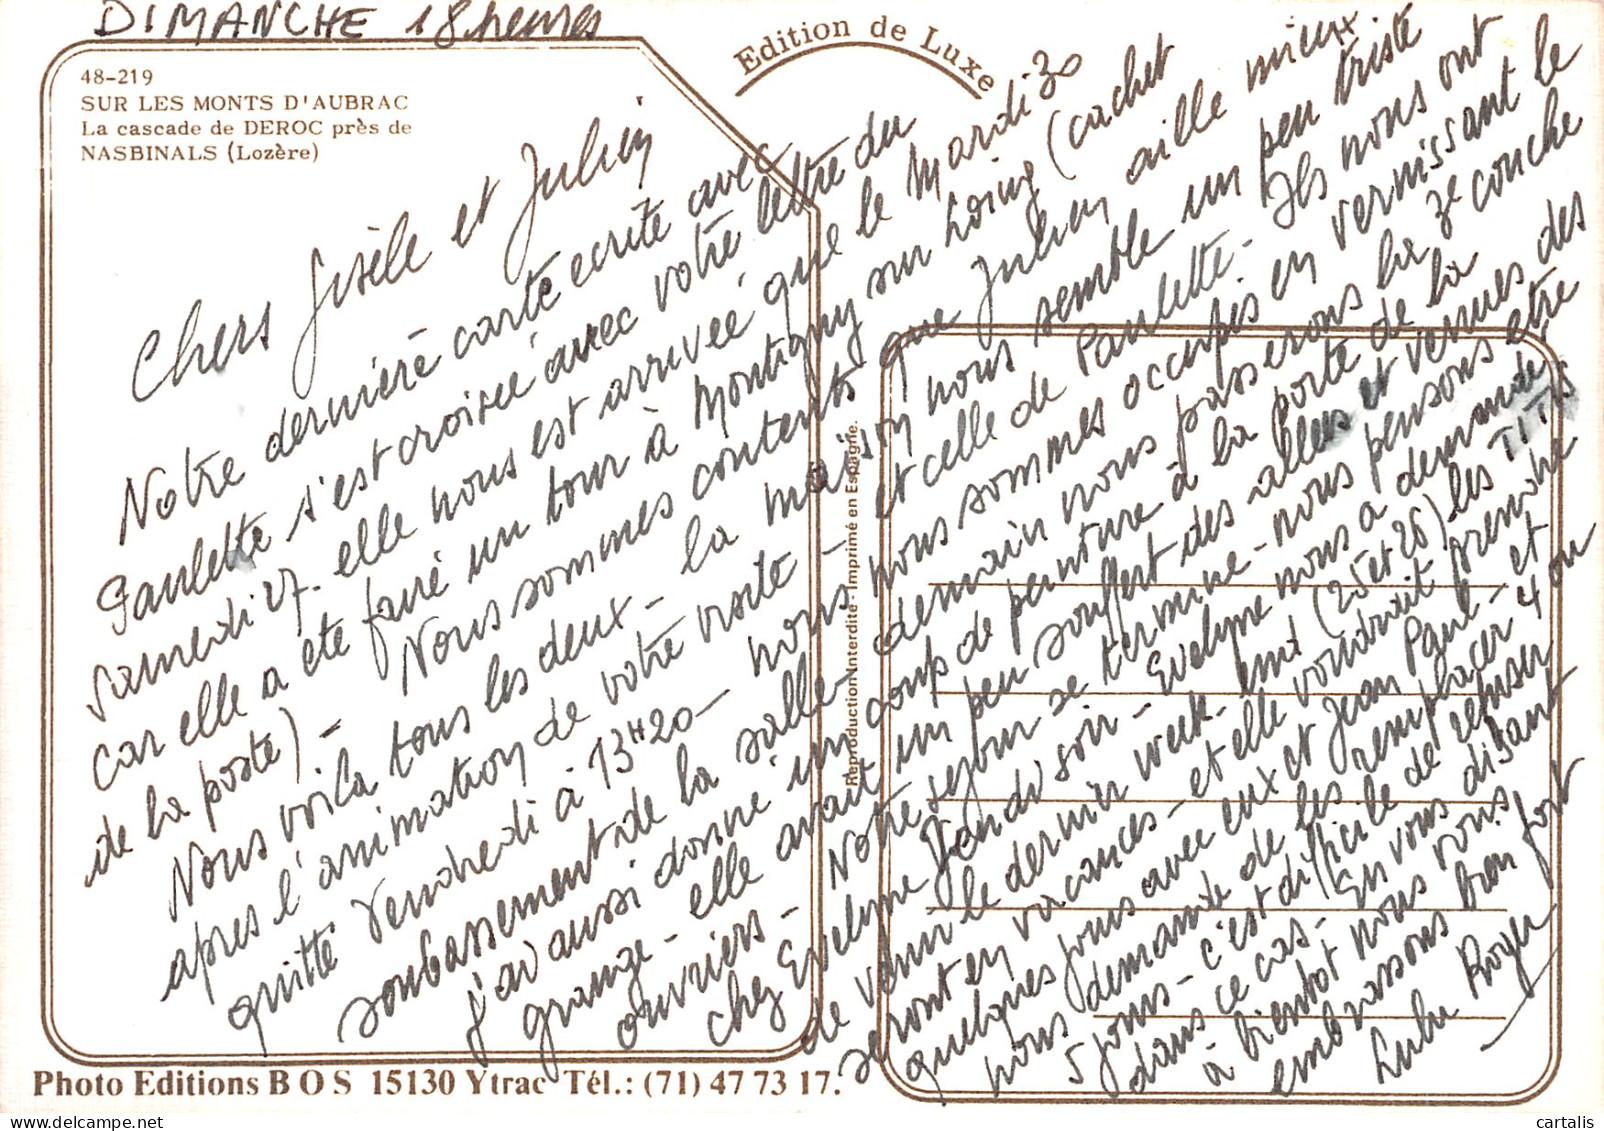 DIMANCHE 18 heures
48-219
SUR LES MONTS D'AUBRAC
La cascade de DEROC près de
NASBINALS (Lozère)
Edition de Luxe
Chers Gisèle et Julien
Notre dernière carte ecrite avec
Paulette s'est croisée avec votre lettre du
samedi 27. elle nous est arrivée que le Mardi 30
car elle a été faire un tour à Montigny sur Loing (cachet
de la poste) - Nous sommes contents que Julien aille mieux
Nous voilà tous les deux - la maison nous semble un peu triste
après l'animation de votre visite - et celle de Paulette - Ils nous ont
quitté Vendredi à 13H20 - nous nous sommes occupés en vernissant le
soubassement de la salle - demain nous passerons la 2e couche
j'ai aussi donné un coup de peinture à la porte de la
grange - elle avait un peu souffert des allees et venues des
ouvriers - Notre sejour se termine - nous pensons etre
chez Evelyne Jeudi soir - Evelyne nous a demandé
de venir le dernier week-end (25 et 26) les TITIS
seront en vacances - et elle voudrait prendre
quelques jours avec eux et Jean Paul - et
nous demande de les remplacer 4 ou
5 jours - c'est difficile de refuser
dans ce cas - En vous disant
à bientot nous vous
embrassons bien fort
Lulu Roger
Reproduction Interdite - Imprimé en Espagne.
Photo Editions B O S 15130 Ytrac Tél.: (71) 47 73 17.
cartalis